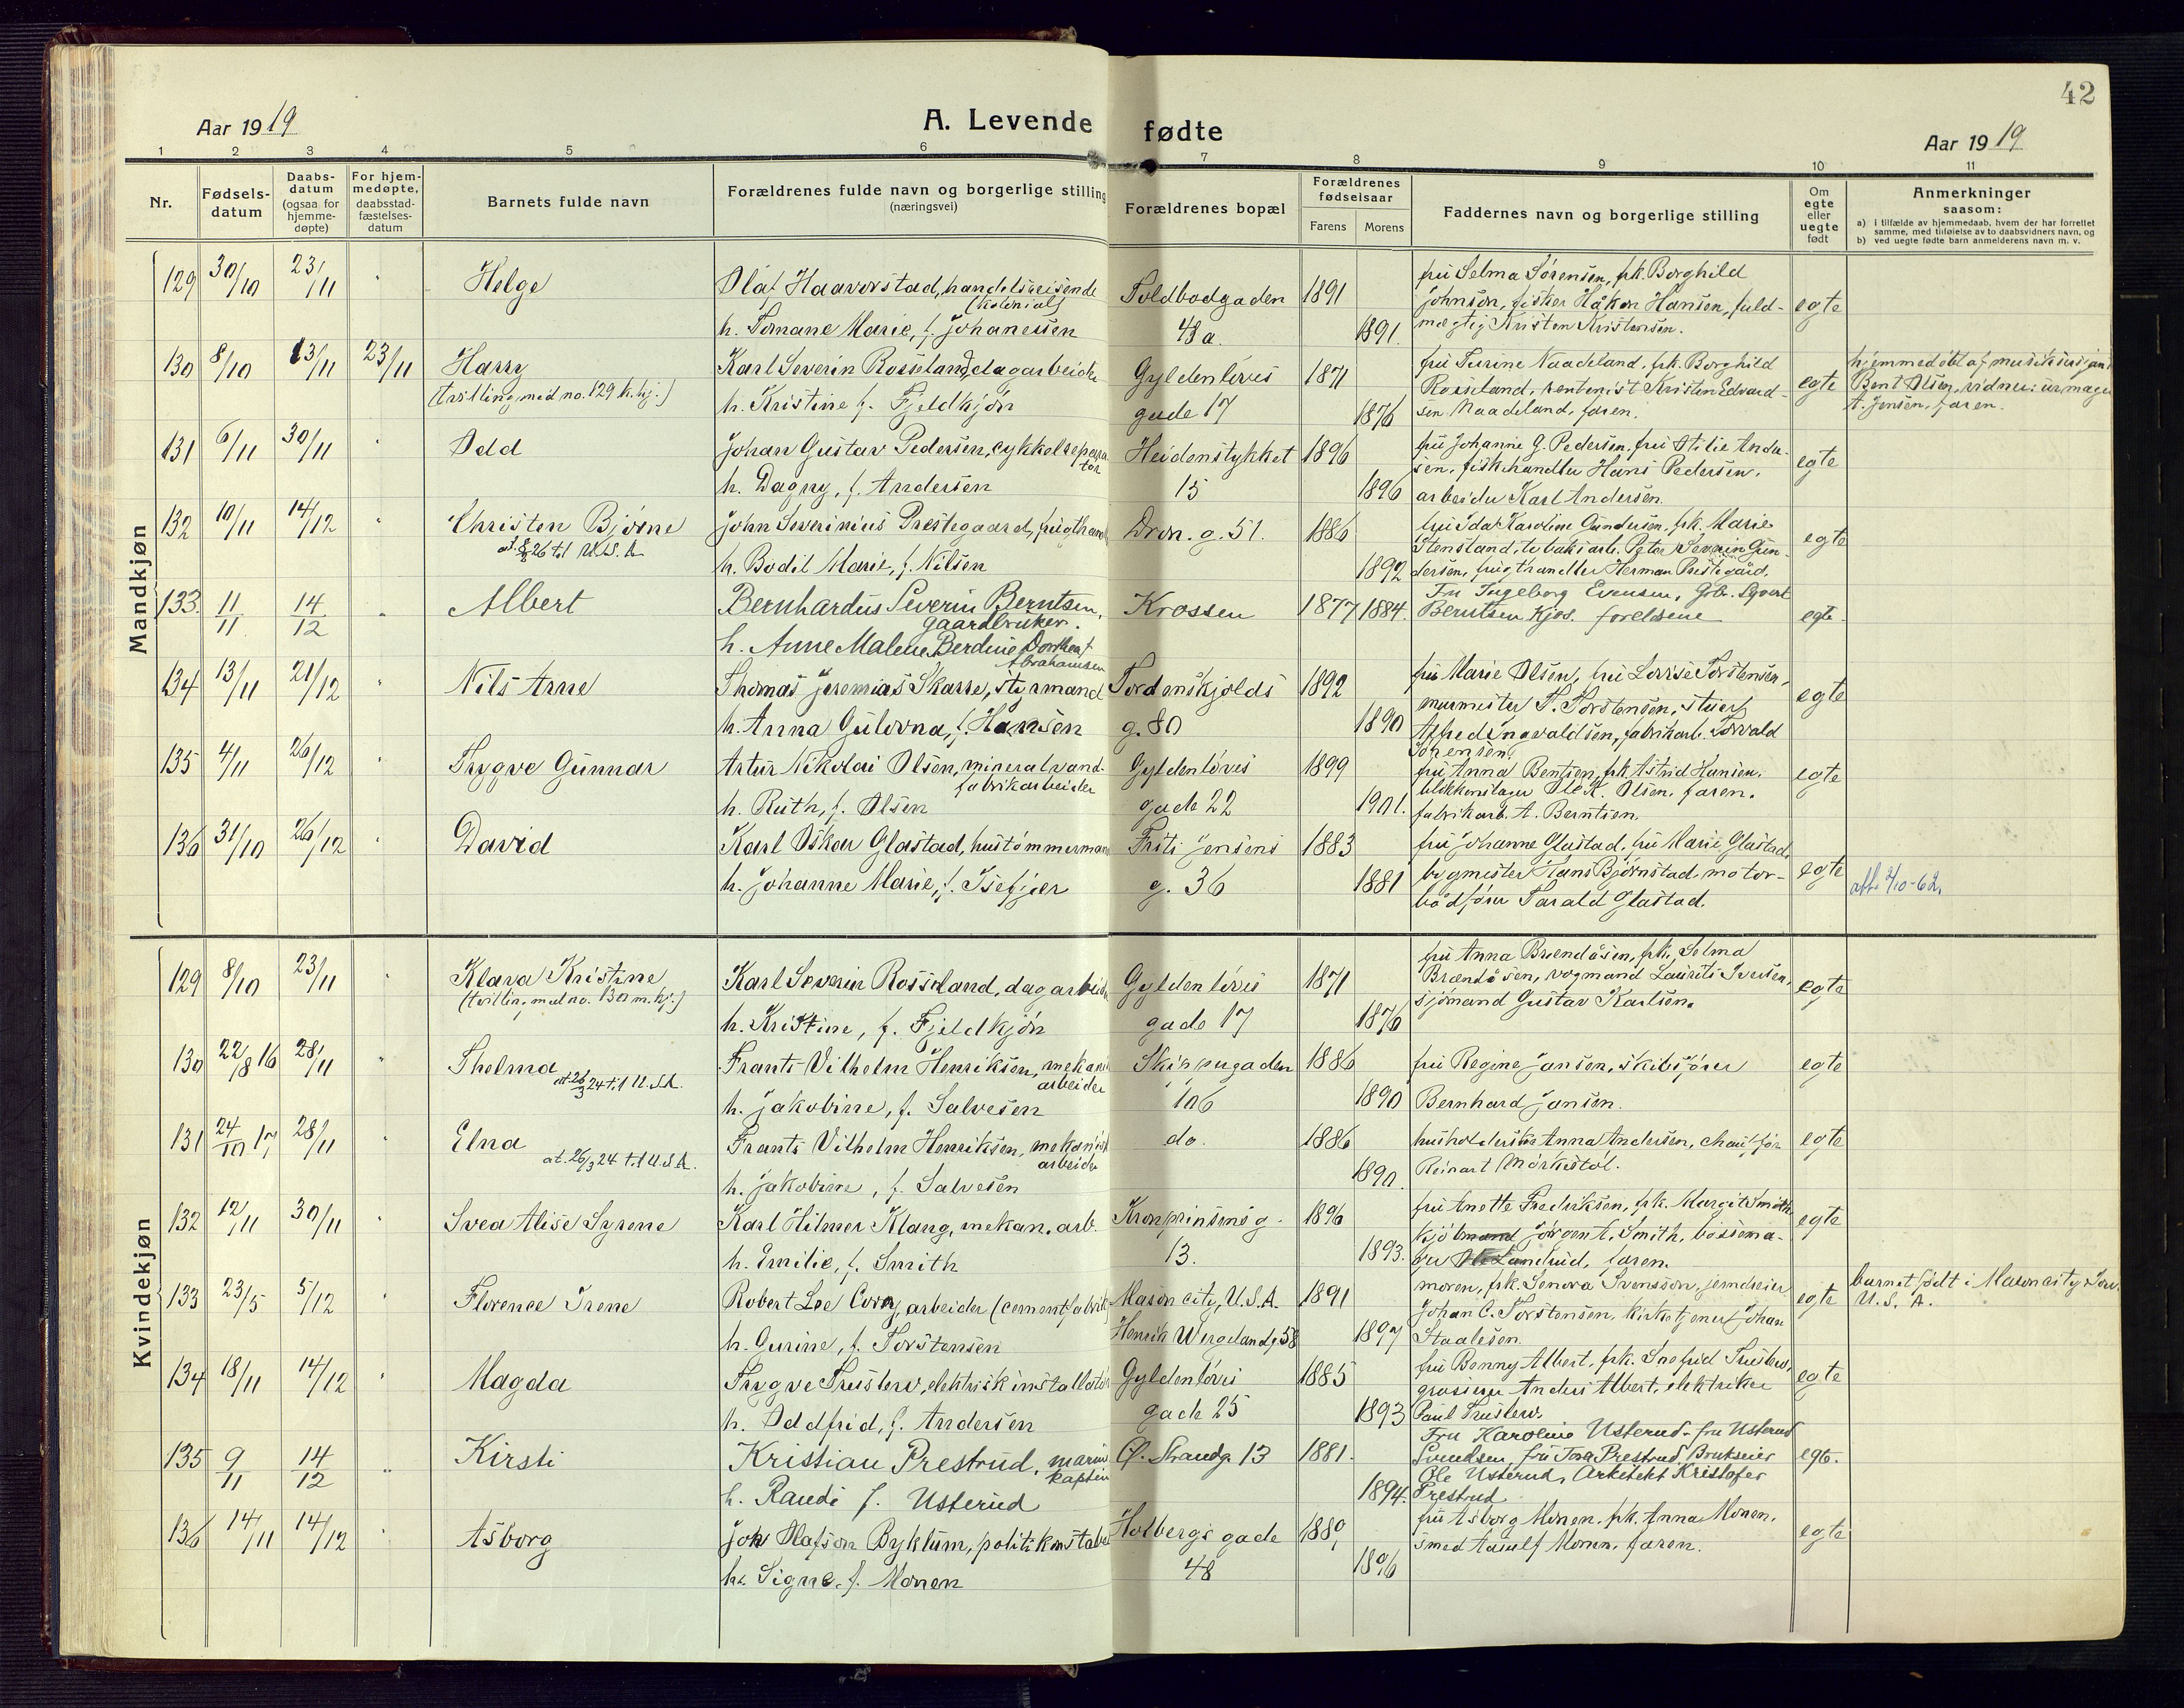 42
Aar 1919
A. Levende fødte
Aar 1919
1 2 3 4 5 6 7 8 9 10 11
Nr.
Fødsels-
datum
Daabs-
datum
(ogsaa for
hjemme-
døpte)
For hjem-
medøpte,
daabsstad-
fæstelses-
datum
Barnets fulde navn
Forældrenes fulde navn og borgerlige stilling
(næringsvei)
Forældrenes bopæl
Forældrenes
fødselsaar
Farens Morens
Faddernes navn og borgerlige stilling
Om
egte
eller
uegte
født
Anmerkninger
saasom:
a) i tilfælde av hjemmedaab, hvem der har forrettet
samme, med tilføielse av to daabsvidners navn, og
b) ved uegte fødte barn anmelderens navn m. v.
Mandkjøn
129 30/10 23/11 " Helge
Olaf Haavorstad, handelsreisende
(kolonial)
h. Tomane Marie, f. Johanessen
Toldbodgaden
48a.
1891
1891.
fru Selma Sørensen, frk. Borghild
Johnson, fisker Håkon Hansen, fuld-
mægtig Kristen Kristensen.
egte
130 8/10 13/11 23/11 Harry
(tvilling med no. 129 k.kj.)
Karl Severin Rosseland, dagarbeider
h. Kristine f. Fjeldkjøn
Gyldenløves
gade 17
1871
1876
fru Turine Naadeland, frk. Borghild
Rosseland, rentenist Kristen Edvard-
sen Naadeland, faren.
egte
hjemmedøbt af
Bent Olsen, vidner: urmager
A. Jensen, faren.
131 6/11 30/11 " Odd
Johan Gustav Pedersen, cykkelrepara-
tør
h. Dagny, f. Andersen
Heidenstykket
15
1896
1896
fru Johanne G. Pedersen, fru Otilie Ander-
sen, fiskehandler Hans Pedersen,
arbeider Karl Andersen.
egte
132 10/11 14/12 " Christen Bjørne
at. 8/8 26 t.l U.S.A
John Severinius Prestegaard, frugthand
h. Bodil Marie, f. Nilsen
Dron. g. 51.
1886
1892
fru Ida Karoline Gundersen, frk. Marie
Stensland, tobaksarb. Peter Severin Gun-
dersen, frugthandler Herman Prestegård.
egte
133. 11/11 14/12 " Albert
Bernhardus Severin Berntsen,
gaardbruker.
h. Anne Malene Berdine Dorthea f.
Abrahamsen
Krossen
1877 1884.
Fru Ingeborg Evensen, Gbr. Sigvart
Berntsen Kjos. foreldrene
egte.
134 13/11 21/12 " Nils Arne
Thomas Jeremias Skarre, styrmand
h. Anna Gulovna, f. Hansen
Tordenskjolds
g. 80
1892
1890
fru Marie Olsen, fru Lovise Torstensen,
murmester T. Torstensen, stuert
Alfred Ingvaldsen, fabrikarb. Torvald
Sørensen.
egte
135 4/11 26/12 " Trygve Gunnar
Artur Nikolai Olsen, mineralvand-
fabrikarbeider
h. Ruth, f. Olsen
Gyldenløves
gade 22
1899
1901.
fru Anna Bentsen, frk. Astrid Hansen,
blikkenslager Ole K. Olsen, faren.
fabrikarb. A. Berntsen.
egte
136 31/10 26/12 " David
Karl Oskar Glastad, hustømmermand
h. Johanne Marie, f. Isefjær
Frits Jensens
g. 36
1883
1881
fru Johanne Glastad, fru Marie Glastad,
bygmester Hans Bjørnstad, motor-
bådfører Tarald Glastad.
egte
att. 2/10-62.
Kvindekjøn
129 8/10 23/11 " Klara Kristine
(tvilling med no. 130 m.kj.)
Karl Severin Rosseland, dagarbeider
h. Kristine, f. Fjeldkjøn
Gyldenløves
gade 17
1871
1876
fru Anna Brændåsen, frk. Selma
Brændåsen, vogmand Laurits Iversen,
sjømand Gustav Karlsen.
egte
130 22/8 16 28/11 " Thelma
at. 26/3 24 t.l U.S.A.
Frants Vilhelm Henriksen, mekanisk
arbeider
h. Jakobine, f. Salvesen
Skippergaden
106
1886
1890
fru Regine Jansen, skibsfører
Bernhard Jansen.
egte
131 24/10 17, 28/11 Elna
at. 26/3 24 t.l U.S.A.
Frants Vilhelm Henriksen, mekanisk
arbeider
h. Jakobine, f. Salvesen
do.
1886
1890.
husholderske Anna Andersen, chaufør
Reinart Mørkestøl.
egte
132 12/11 30/11 " Svea Alise Syrene
Karl Hilmer Klang, mekan. arb.
h. Emilie, f. Smith
Kronprinsens g.
13.
1896
1893.
fru Anette Fredriksen, frk. Margit Smith
kjøbmand Jørgen A. Smith, bøssema-
ger Landrud, faren.
egte
133 23/5 5/12 " Florence Irene
Robert Lee Corn, arbeider (cementfabrik)
h. Gurine, f. Torstensen
Mason city, U.S.A.
Henrik Wergelandsg. 58
1891
1897
moren, frk. Senora Svensson, jerndreier
Johan C. Torstensen, kirketjener Johan
Staalesen.
egte
barnet født i Mason city, Iowa,
U. S. A.
134 18/11 14/12 " Magda
Trygve Trusler, elektrisk installatør
h. Oddfrid, f. Andersen
Gyldenløves
gade 25
1885
1893
fru Benny Albert, frk. Snefrid Trusler,
grosserer Anders Albert, elektriker
Paul Trusler.
egte
135 9/11 14/12 " Kirsti
Kristian Prestrud, marine
kaptein
h. Randi f. Usterud
Ø. Strandg. 13
1881.
1894.
Fru Karoline Usterud - fru Usterud
Svendsen, fru Tora Prestrud, Brukseier
Ole Usterud, Arkitekt Kristofer
Prestrud
egte.
136 14/11 14/12 " Åsborg
Joh Olafson Byklum, politikonstabel
h. Signe, f. Monen
Holbergs gade
48
1889
1896
fru Åsborg Monen, frk. Anna Monen,
smed Aanulf Monen, faren.
egte